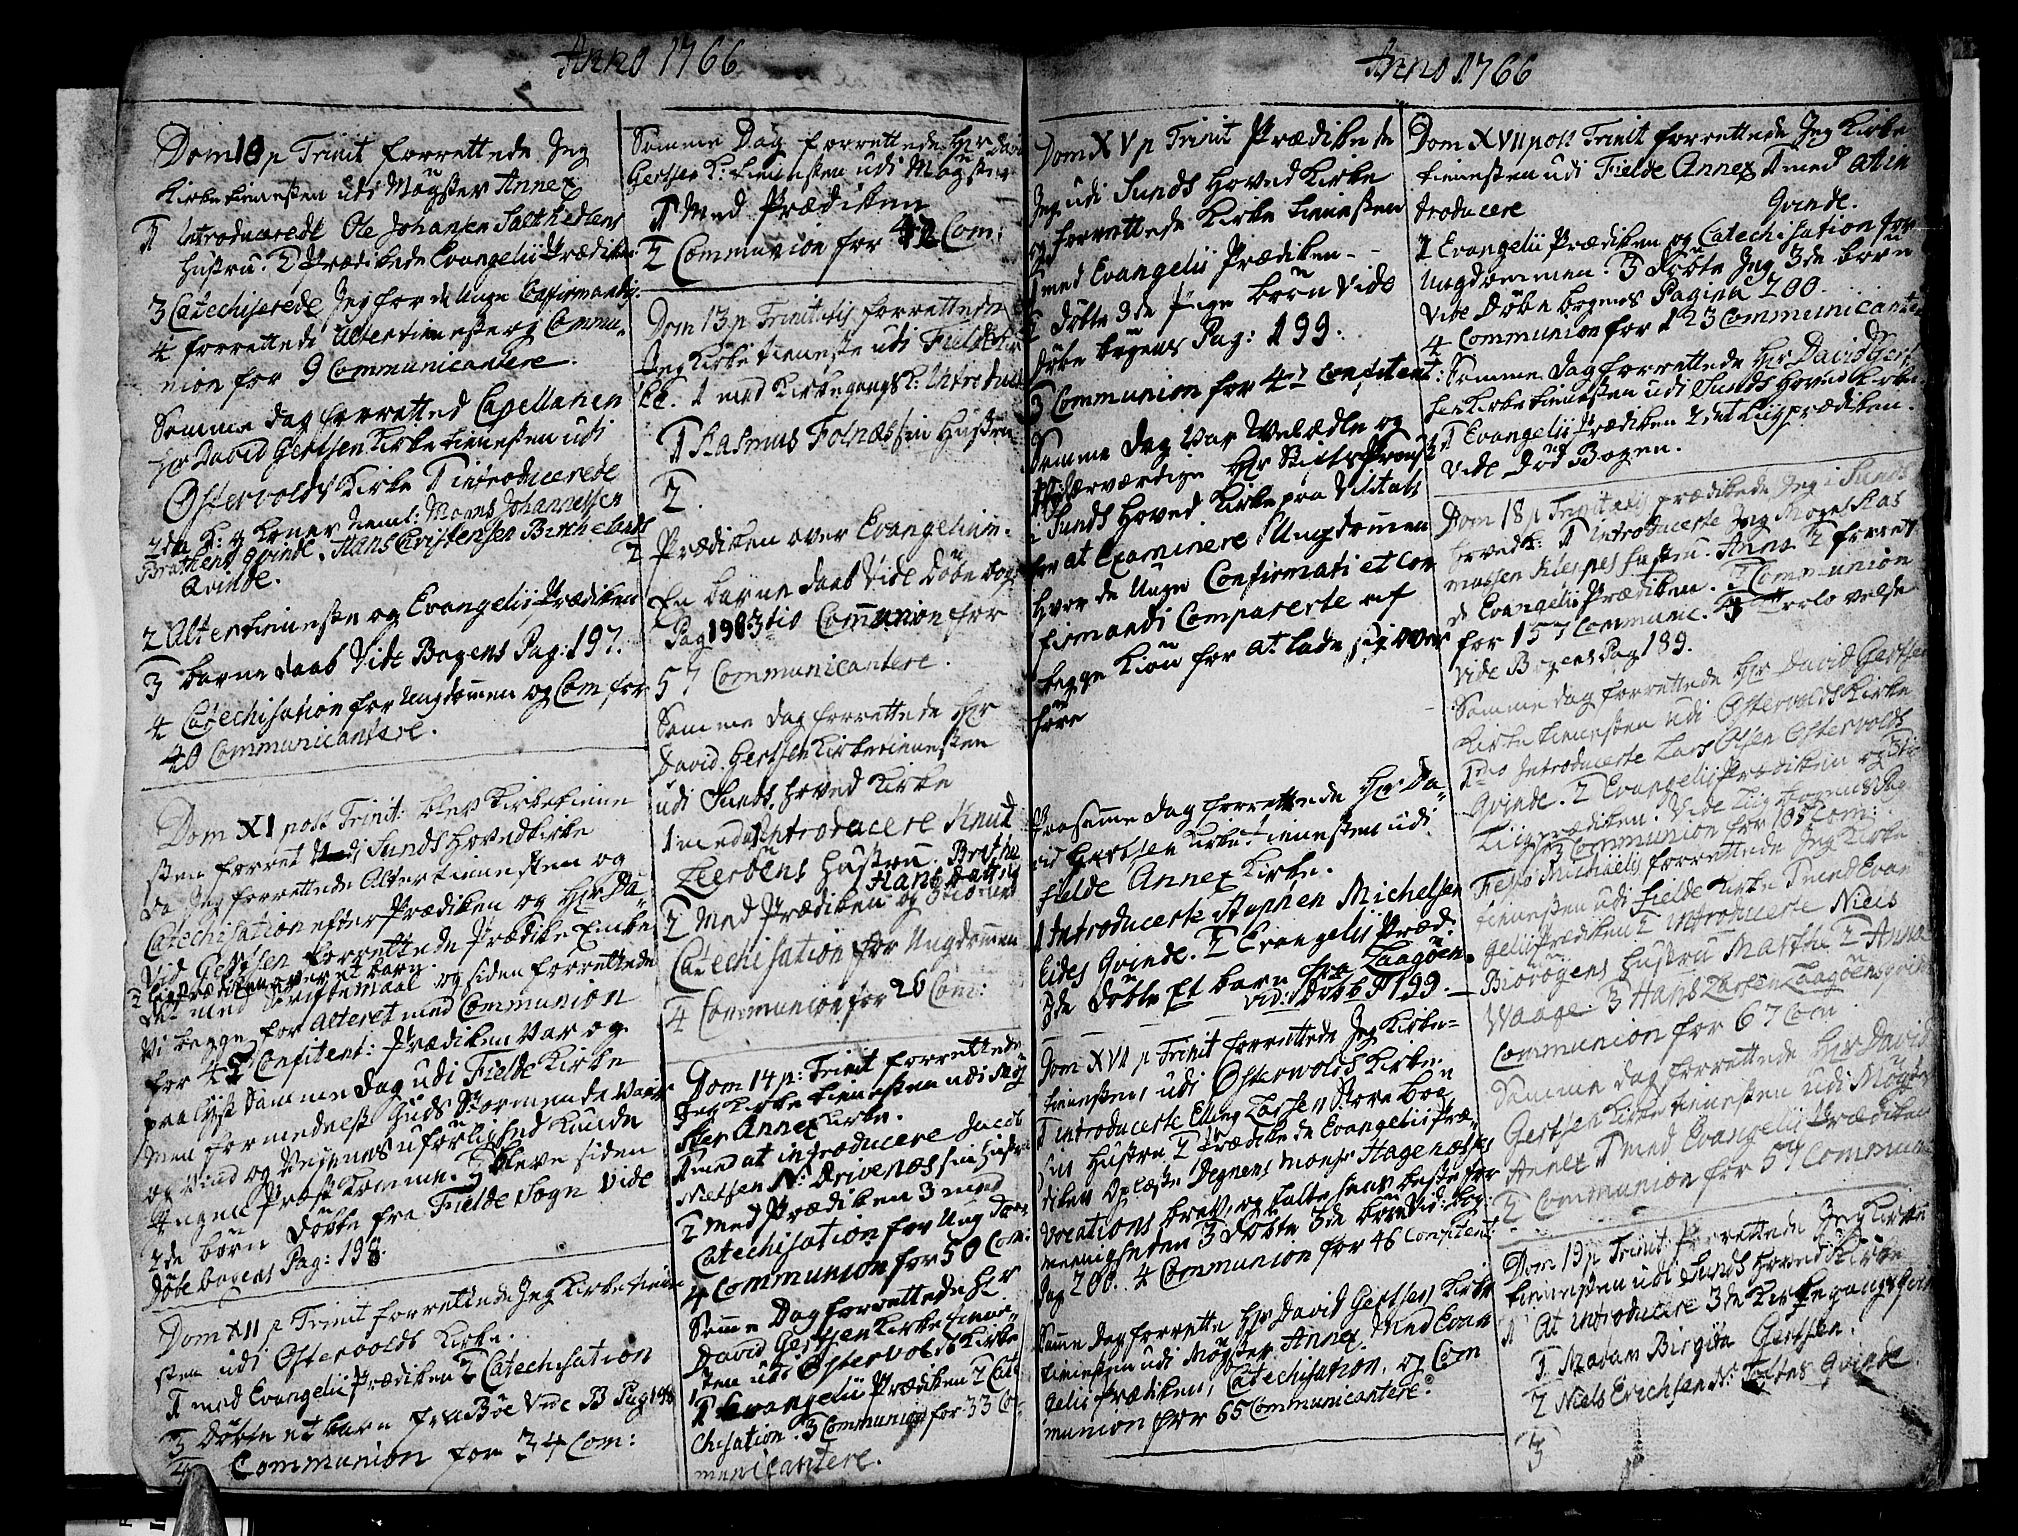 Anno 1766
Dom 10 p Trinit forrettede Jeg
Kirketienesten udi Møgster Annex
1 Introducerede Ole Johansen Salthellens
Hustru. 2 Prædikede Evangelii Prædiken
3 Catechiserede Jeg for de Unge Confirmandi.
4 forrettede Altertieneste og Commu-
nion for 9 Communicantere.
Samme dag forretted Capellanen
Hr David Gertsen Kirketienesten udi
Ostervolds Kirke 1 introducerede
2de K: g Koner neml: Mons Johannessen
Qvinde. Hans Christensen Birkelands
Qvinde.
2 Altertieneste og Evangelii Prædiken
3 barne daab Vide Bogens Pag: 197.
4 Catechisation for Ungdommen og Com for
40 Communicantere.
Dom XI post Trinit: blev Kirketiene
sten forret udi Sunds Hovedkirke
da Jeg forrettede Altertienesten og
Catechisation efter Prædiken og Hr Da-
vid Gertsen forrettede Prædike Embe
2 Ligprædiken over et barn
det med Skriftemaal og siden forrettede
Vi begge for Alteret med Communion
for Confitent: Prædiken Var og
paalyst Samme dag udi Fielde Kirke
men formedelst Guds Stormende Vær
og Vind og Veyenes uførlighed kunde
Ingen Præst komme. 3 bleve siden
2de børn døbte fra Fielde Sogn Vide
Døbe bogens Pag: 198.
Dom XII p Trinit forrettede Jeg Kirketiene
sten udi Ostervolds Kirke.
1 med Evangelii Prædiken 2 Catechisation
3 døbte et barn fra Bøe Vide B Pag 198
4 Communion for 34 Com:
Samme Dag forrettede Hr David
Gertsen K: tienesten udi Møgster
1 Med Prædiken
2 Communion for 42 Com:
Dom 13 p Trinitatis forrettede
Jeg Kirke tieneste udi Fielde Kir
ke. 1 med Kirkegangs K: Introduc
1 Rasmus Folnæs sin Hustru
2
Prædiken over Evangelium.
En barne daab Vide Døbe bog
Pag 198 3tio Communion for
57 Communicantere.
Samme dag forrettede Hr
David Gertsen Kirketienesten
udi Sunds Hoved Kirke
1 med Introducere Knut
Leeroens Hustru. Brithe
Hans datter
2 med Prædiken og
Catechisation for Ungdommen
4 Communion for 26 Com:
Dom 14 p: Trinit forrettede
Jeg Kirke tienesten udi Møg
ster Annex Kirke.
1 med at introducere Jacob
Nielsen N: Drivenæs sin Hustru
2 med Prædiken 3 med
Catechisation for Ung dom
4 Communion for 50 Com:
Samme Dag forrettede Hr
David Gertsen Kirke tiene
sten udi Ostervolds Kirke
1 Evangelii Prædiken 2 Cate
chisation. 3 Communion for 33 Co
municantere.
Anno 1766
Dom XV p Trinit Prædikede
Jeg udi Sunds Hoved Kirke
og forrettede Kirke tienesten
1 med Evangelii Prædiken
2 døbte 3de Pige børn Vide
døbe bogens Pag: 199.
3 Communion for 47 Confitent:
Samme dag Var Velædle og
Høylærværdige Hr Stiftsprovst
i Sunds Hoved Kirke paa Visitatz
for at Examinere Ungdommen
hvor de Unge Confirmati et con
firmandi Comparerte af
begge Kiøn for at lade sig over
høre
Paa samme dag forrettede Hr Da-
vid Gertsen Kirke tienesten udi
Fielde Annex Kirke.
1 Introducerte Stephen Michelsen
Eides Qvinde. 2 Evangelii Præd.
3de døbte Et barn fra Laagøen.
vid: Døbb P 199.
Dom XVI p Trinit forrettede Jeg Kirke-
tienesten, udi Ostervolds Kirke.
1 introducerte Elling Larsen Store boe
sin Hustru 2 Prædikede Evangelii Præ-
diken Oplæste Degnens Monsr Hagenæs
Vocations brev, og talte beste for
meenigheden 3 Døbte 3de børn Vid: bog.
Pag 200. 4 Communion for 46 Confitent.
Samme dag forrette Hr David Gertsen Kirke
tienesten udi Møgster Annex. Med Evan
gelii Prædiken, Catechisation, og Com
munion for 65 Communicantere.
Dom XVII post Trinit forrettede Jeg Kirke
tienesten udi Fielde Annex 1 med at in
troducere Qvinde.
2 Evangelii Prædiken og Catechisation for
Ungdommen. 3 døbte Jeg 3de børn
Vide Døbe bogens Pagina 200.
4 Communion for 123 Communicanter
Samme dag forrettede Hr David Gert
sen Kirketienesten udi Sunds Hoved Kirke
1 Evangelii Prædiken 2 det Liigprædiken.
Vide Død Bogen.
Dom 18 p Trinitatis prædikede Jeg i Sunds
Hovedk: 1 introducerte Jeg Mogns Ras
mussen Hustru. Anna 2 forret
d Evangelii Prædiken. 3 Communion
for 157 Communic. 4 Trolovelse
Vide Bogens Pag 189.
Samme dag forrettede Hr David Gertsen
Kirke tienesten udi Ostervolds Kirke
1mo Introducerte Lars Olsen Ostervolds
Qvinde. 2 Evangelii Prædiken og
Liigprædiken. Vide Liig bogens Pag
3 Communion for 105 Com:
Festo Michaelis forrettede Jeg Kirke
tienesten udi Fielde Kirke 1 med Evan
gelii Prediken 2 Introducerte Niels
Biørøgens Hustru Martha 2 Anna
Waage. 3 Hans Larsen Laagøens qvinde
Communion for 67 Com
Samme dag forrettede Hr David
Gertsen Kirke tienesten udi Møgster
Annex 1 med Evangelii Prædiken
2 Communion for 57 Communi
Dom 19 p Trinit: forrettede Jeg Kirke
tienesten udi Sunds Hoved Kirke
1 At introducere 3de Kirkegangs Qvin
1 Madam Birgitta Gertsen.
2 Niels Erichsen N: Qvinde
3